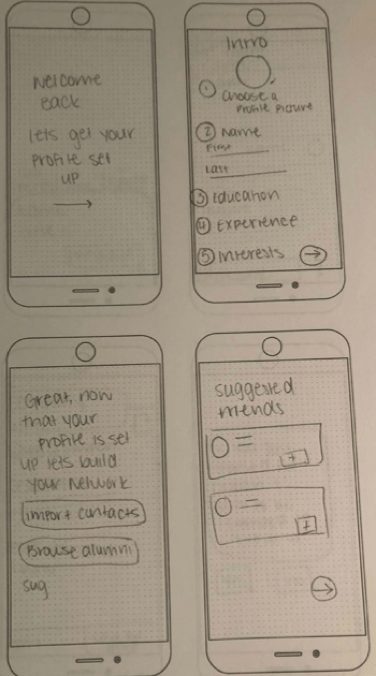 Welcome
Back
lets get your
Profile set
up
Intro
1
Choose a
Profile Picture
2 Name
First
Last
3 Education
4 Experience
5 Interests
Great, now
that your
profile is set
up lets build
your Network
import contacts
Browse alumni
sug
suggested
friends
+
+